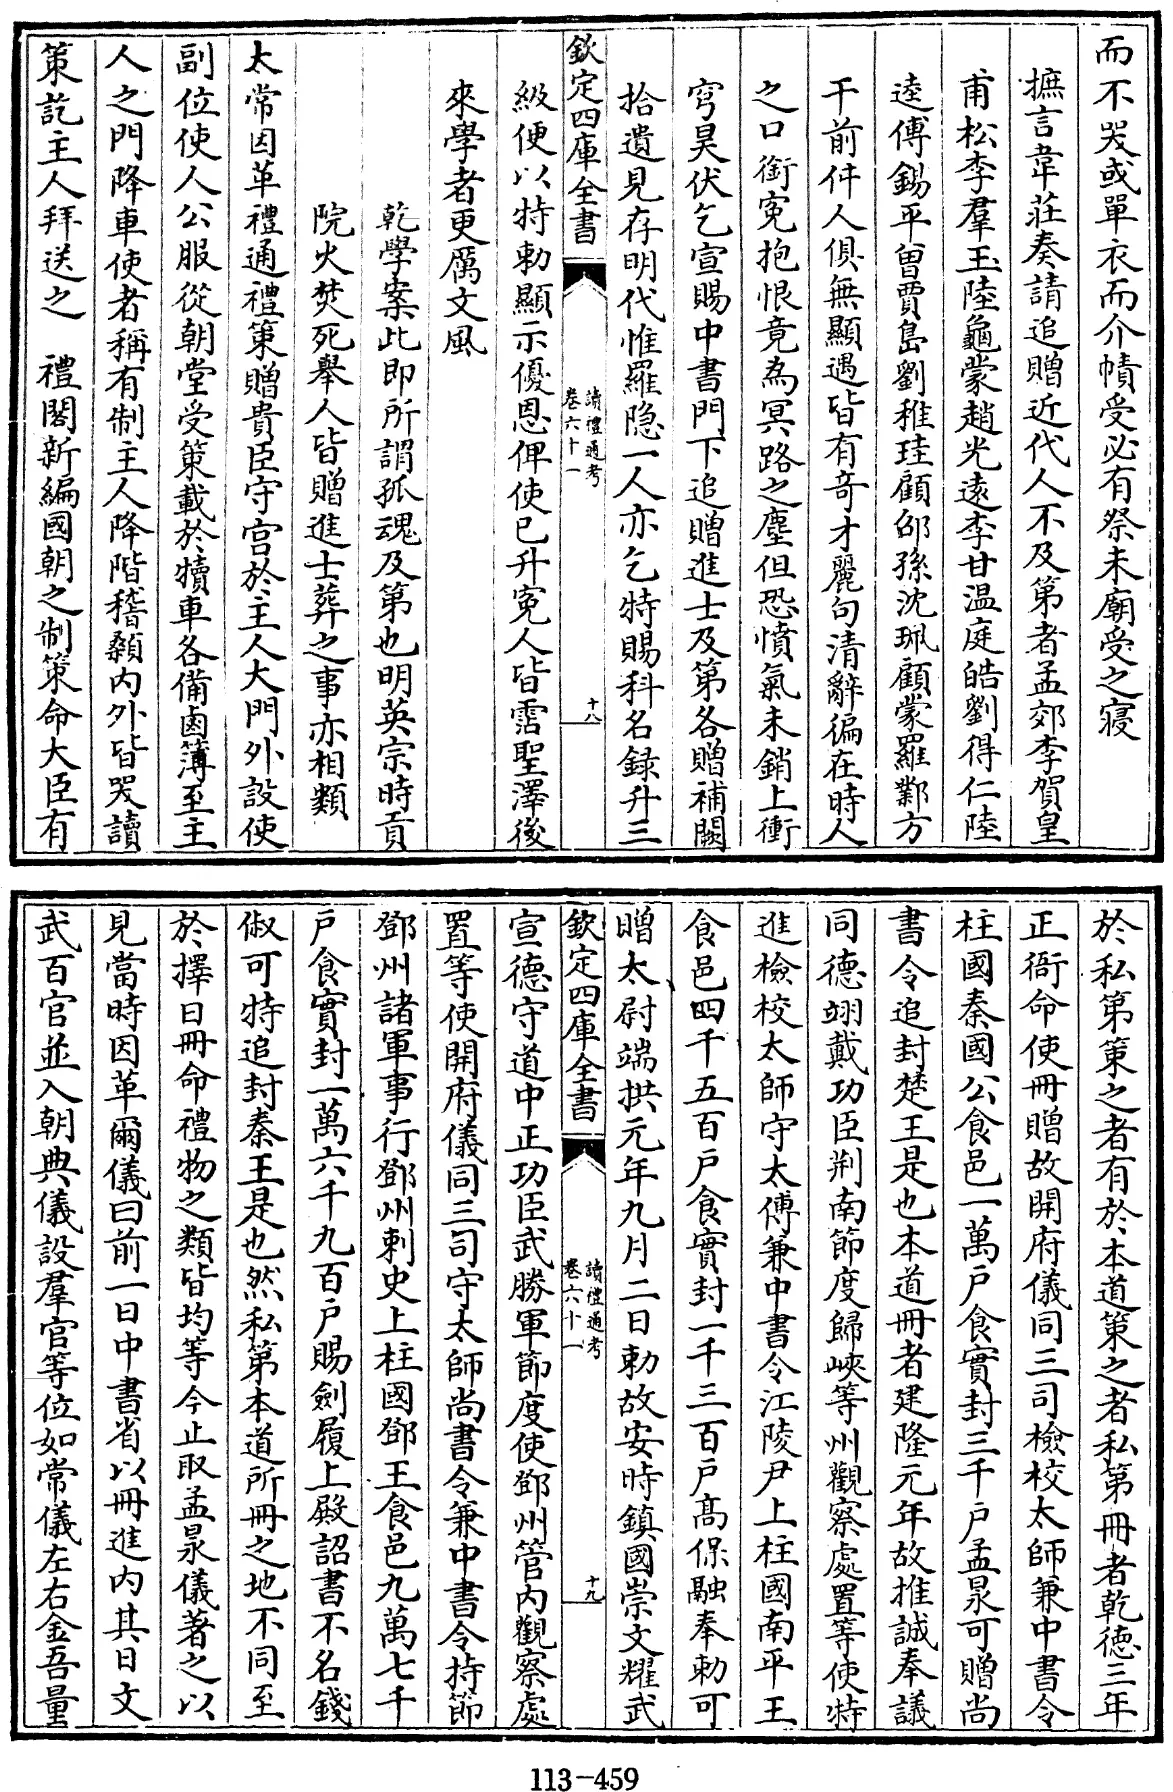 而不哭或單衣而介幘受必有祭未廟受之寢
摭言韋莊奏請追贈近代人不及第者孟郊李賀皇
甫松李羣玉陸龜蒙趙光遠李甘温庭皓劉得仁陸
逵傅錫平曽賈島劉稚珪顧邵孫沈珮顧蒙羅鄴方
干前件人俱無顯遇皆有竒才麗句清辭徧在時人
之口銜寃抱恨竟為冥路之塵但恐憤氣未銷上衝
穹昊伏乞宣賜中書門下追贈進士及第各贈補闕
拾遺見存明代惟羅隐一人亦乞特賜科名録升三
欽定四庫全書
讀禮通考
卷六十一
十八
級便以特勅顯示優恩俾使已升寃人皆霑聖澤後
來學者更厲文風
乾學案此即所謂孤魂及第也明英宗時貢
院火焚死舉人皆贈進士葬之事亦相類
太常因革禮通禮策贈貴臣守宫於主人大門外設使
副位使人公服從朝堂受策載於犢車各備鹵簿至主
人之門降車使者稱有制主人降階稽顙内外皆哭讀
策訖主人拜送之 禮閣新編國朝之制策命大臣有
於私第策之者有於本道策之者私第冊者乾徳三年
正衙命使冊贈故開府儀同三司檢校太師兼中書令
柱國秦國公食邑一萬戶食實封三千戶孟昶可贈尚
書令追封楚王是也本道冊者建隆元年故推誠奉議
同德翊戴功臣荆南節度歸峽等州觀察處置等使特
進檢校太師守太傅兼中書令江陵尹上柱國南平王
食邑四千五百戶食實封一千三百戶髙保融奉勅可
贈太尉端拱元年九月二日勅故安時鎮國崇文耀武
欽定四庫全書
讀禮通考
卷六十一
十九
宣德守道中正功臣武勝軍節度使鄧州管内觀察處
置等使開府儀同三司守太師尚書令兼中書令持節
鄧州諸軍事行鄧州刺史上柱國鄧王食邑九萬七千
戶食實封一萬六千九百戶賜劍履上殿詔書不名錢
俶可特追封秦王是也然私第本道所冊之地不同至
於擇日冊命禮物之類皆均等今止取孟昶儀著之以
見當時因革爾儀曰前一日中書省以冊進内其日文
武百官並入朝典儀設羣官等位如常儀左右金吾量
113-459